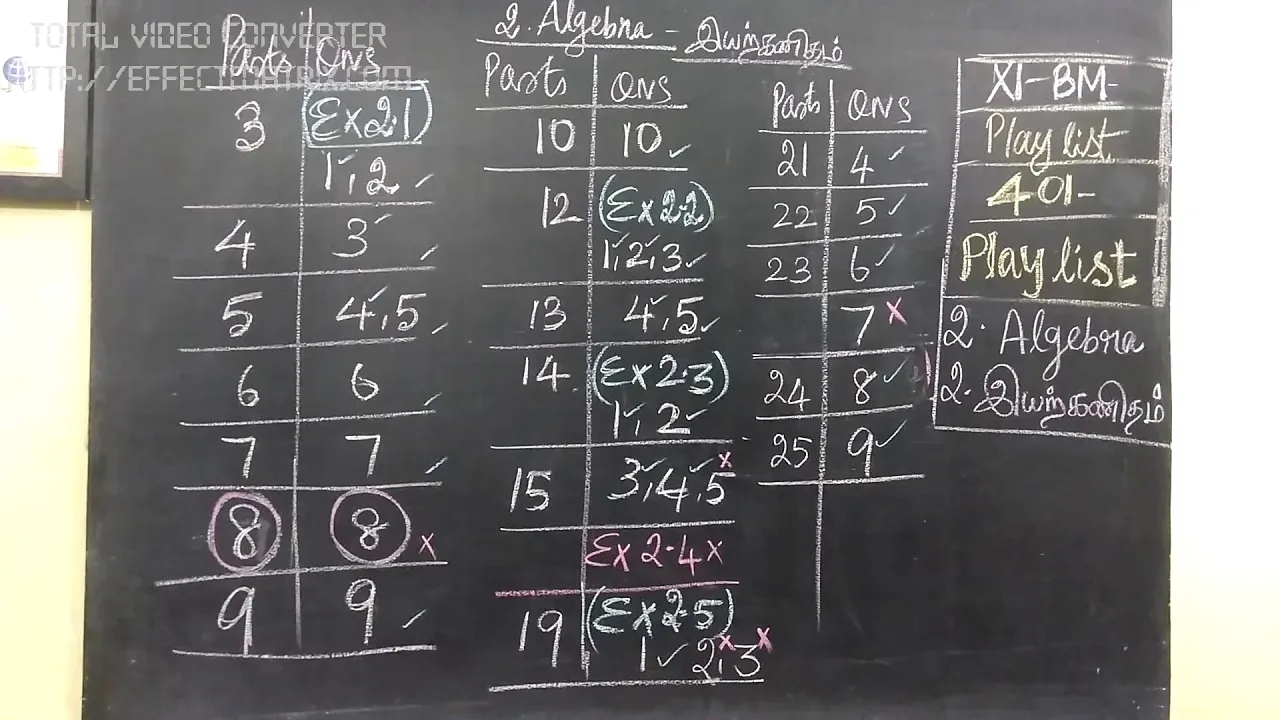 TOTAL VIDEO CONVERTER
HTTP://EFFECTMATRIX.COM
2. Algebra - இயற்கணிதம்
Parts Qns
3 (Ex 2.1)
1, 2 ✓
4 3 ✓
5 4, 5 ✓
6 6 ✓
7 7 ✓
8 8 x
9 9 ✓
Parts QNS
10 10 ✓
12 (Ex 2.2)
1, 2, 3 ✓
13 4, 5 ✓
14 (Ex 2.3)
1, 2 ✓
15 3, 4, 5 x
Ex 2.4 x
19 (Ex 2.5)
1 ✓ 2 x, 3 x
Parts QNS
21 4 ✓
22 5 ✓
23 6 ✓
7 x
24 8 ✓
25 9 ✓
XI-BM-
Play list
401-
Play list
2. Algebra
2. இயற்கணிதம்